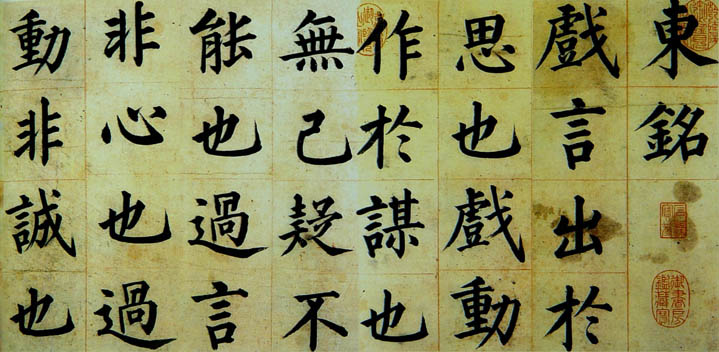 東銘
御書房鑑藏寶
戲言出於
思也戲動
作於謀也
無己疑不
能也過言
非心也過
動非誠也